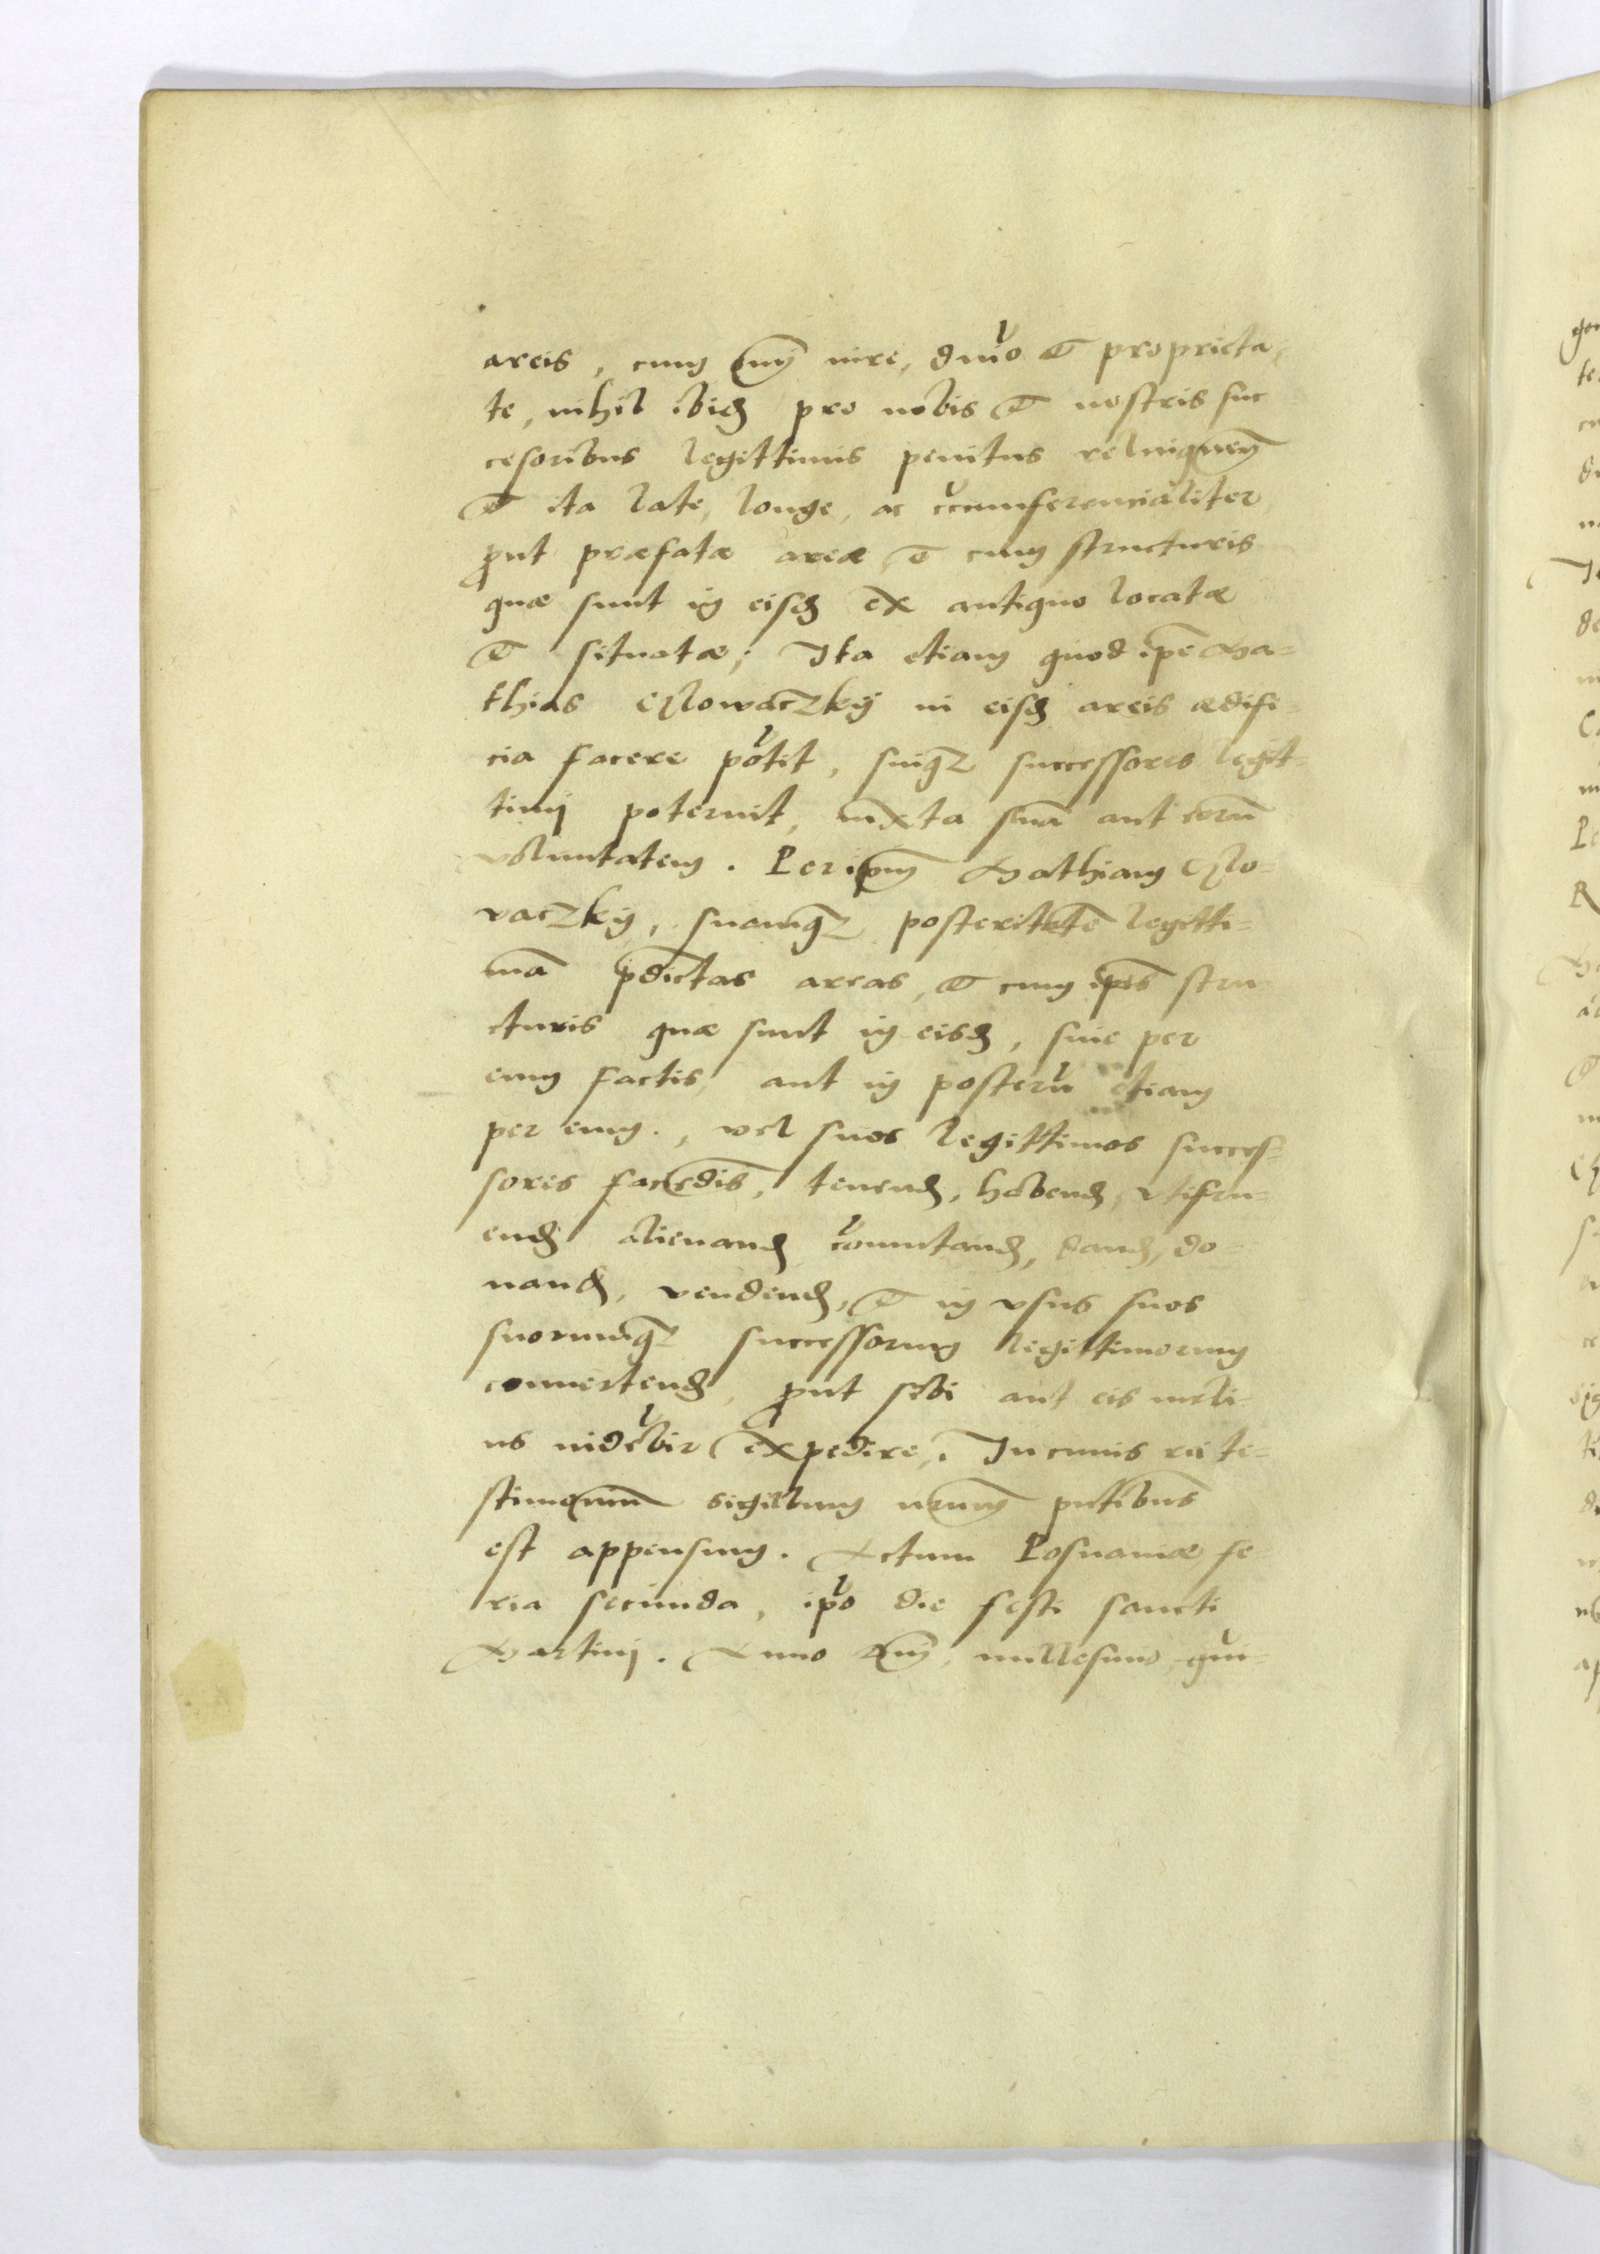 areis, cum om̄i iure, dn̄io et proprieta-
te, nihil ibid pro nobis et nostris suc
cesoribus legittimis penitus relinquen̄
et ita late, longe, ac circumferencialiter
ꝓut præfatæ areæ et cum structuris
quæ sunt in eisd ex antiquo locatæ
et situatæ; Ita etiam quod ip̄e Ma=
thias Nowaczkÿ in eisd areis ædifi
cia facere pot̄it, suiqȝ successores legit=
timij poterint, iuxta suā aut eorū
voluntatem. Per ip̄m Mathiam No=
vaczkÿ, suamqȝ posteritatē legitti=
mā p̄dictas areas, et cum ip̄is stru
cturis quæ sunt in eisd, siue per
eum factis, aut in posterū etiam
per eum, vel suos legittimos succes=
sores faciēdis, tenend, habend, vtifru=
end alienand com̄utand, dand, do=
nand, vendend, et in vsus suos
suorumqȝ successorum legittimorum
conuertend, ꝓut sibi aut eis meli
us videbir expedire. In cuius rei te=
stimoniū sigillum nr̄um pn̄tibus
est appensum. Actum Posnaniæ fe
ria secunda, ip̄o die festi sancti
Martinj. Anno Dn̄i millesimo, qui=